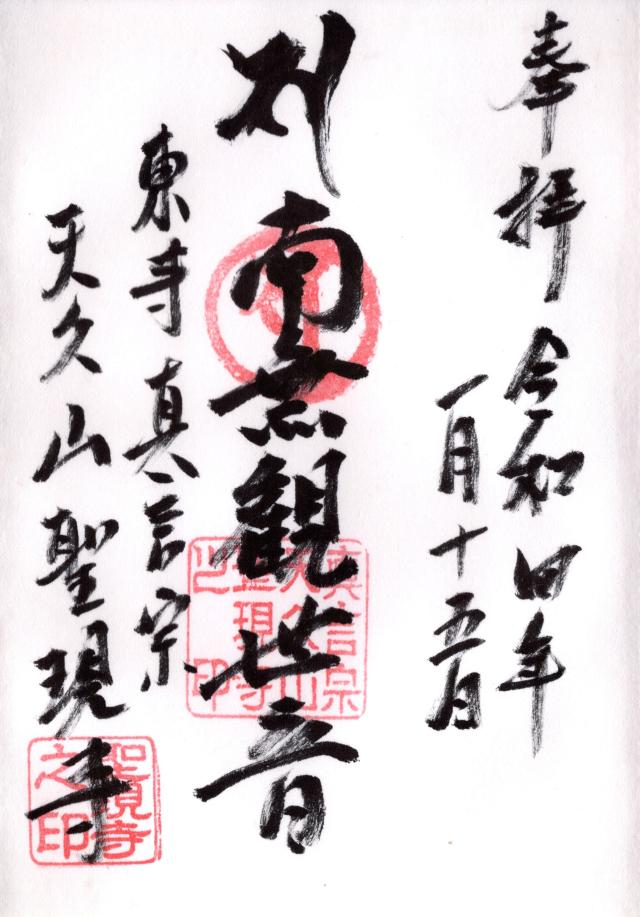 奉拝 令和四年
一月十五日
南無観世音
東寺真言宗
天久山聖現寺
真言宗
天久山
聖現寺
之印
聖現寺
之印